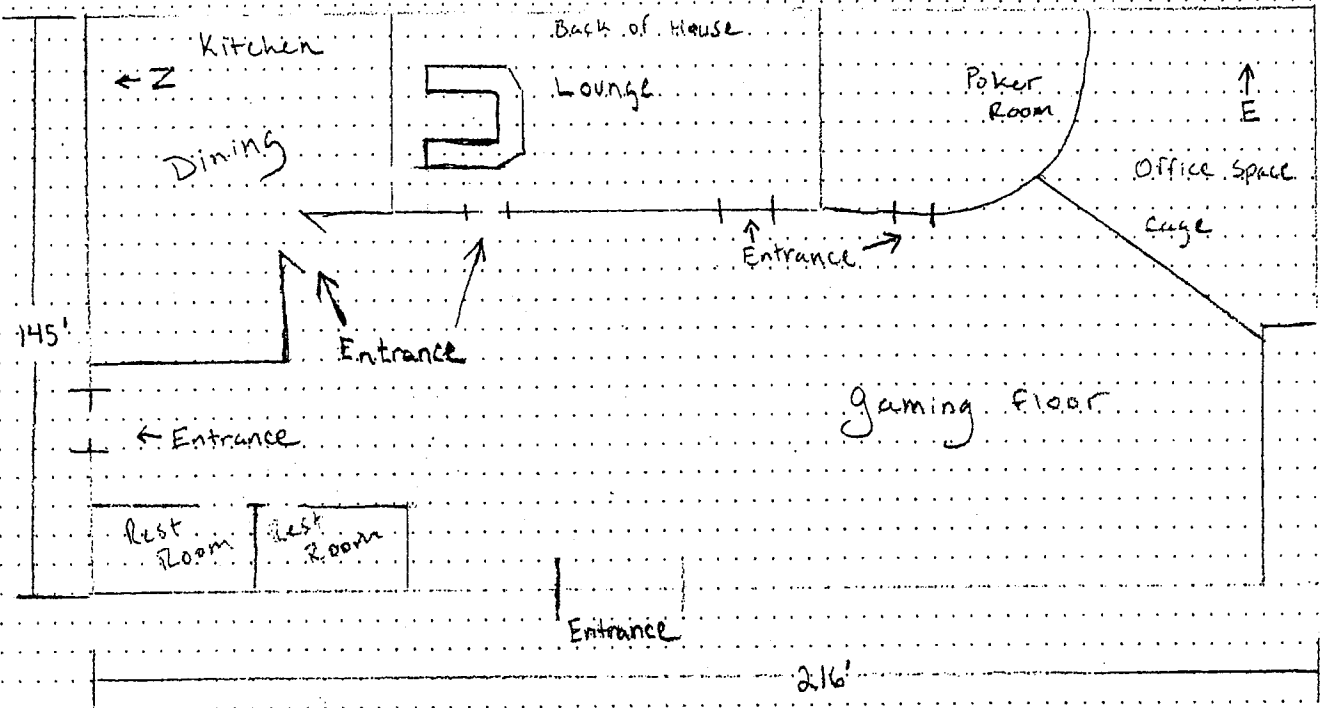 Kitchen
Back of House
← Z
Lounge
Poker
Room
↑
E
Dining
Office Space
Cage
Entrance
145'
Entrance
gaming floor
← Entrance
Rest
Room
Rest
Room
Entrance
216'